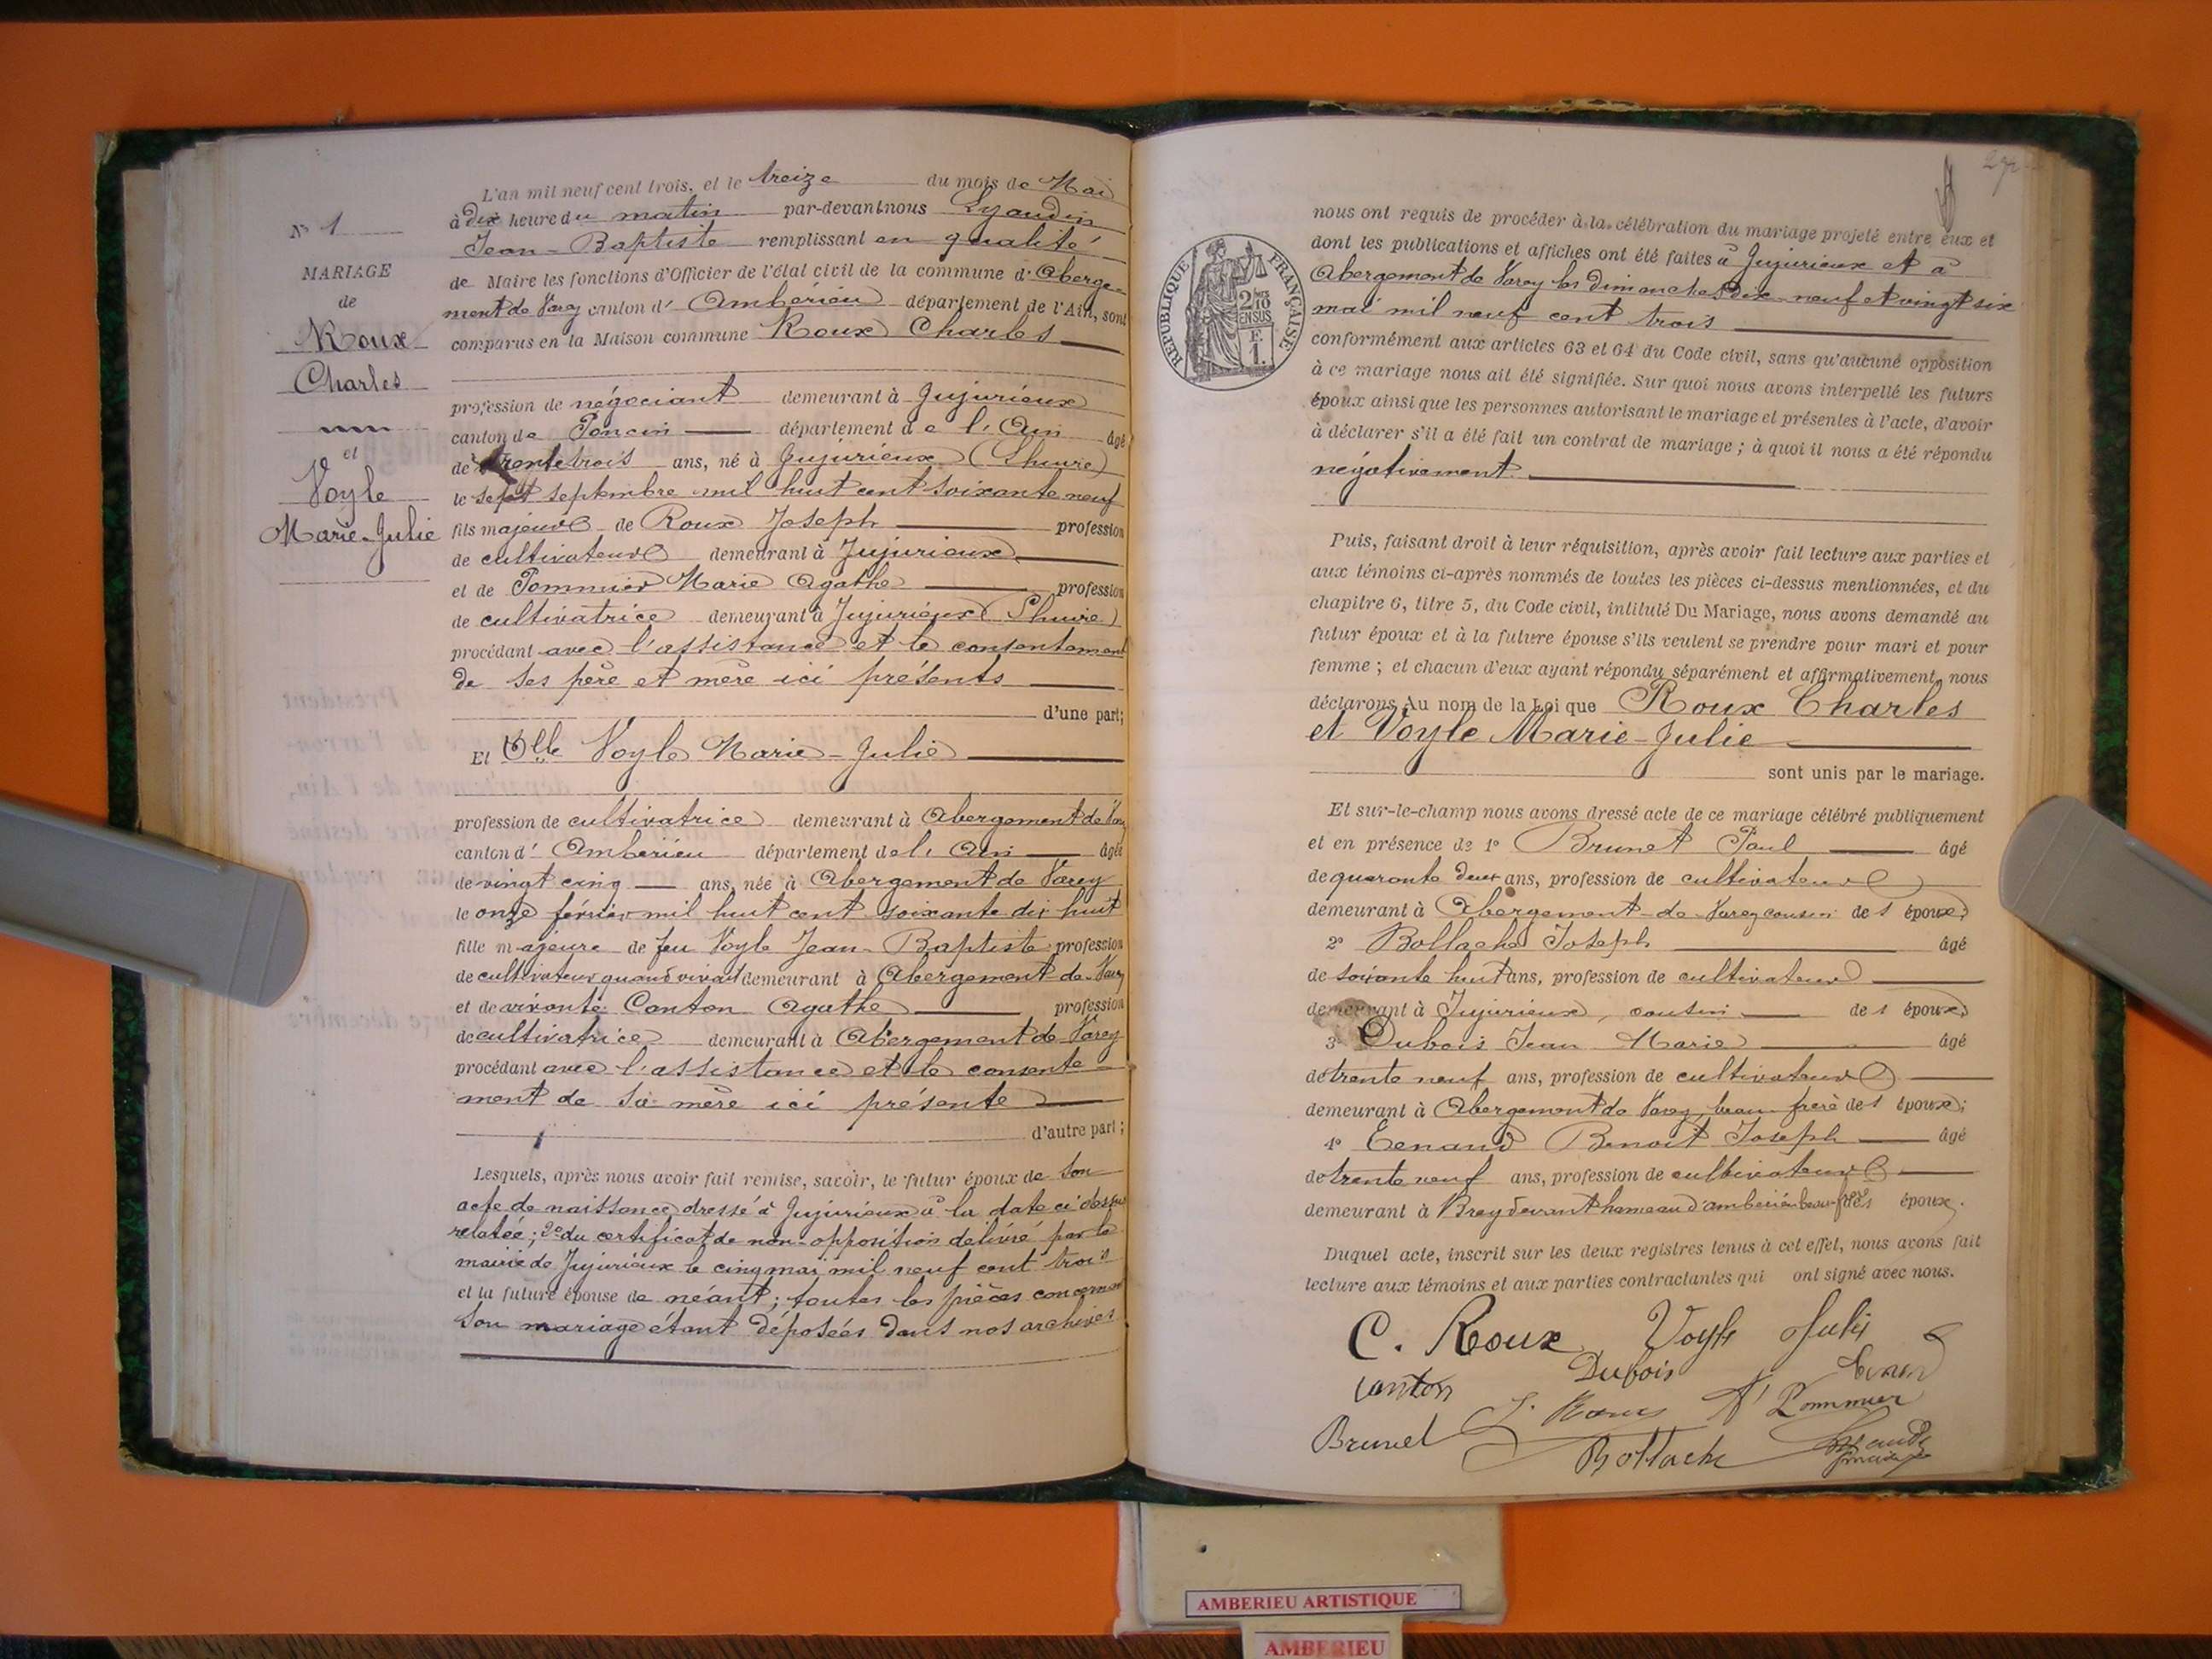 N° 1
MARIAGE
de
Roux
Charles
et
Voyle
Marie-Julie
L'an mil neuf cent trois, et le treize du mois de Mai
à dix heure du matin par-devant nous Lyaudin
Jean-Baptiste remplissant en qualité
de Maire les fonctions d'Officier de l'état civil de la commune d'Aberge-
ment de Varey canton d'Ambérieu département de l'Ain, sont
comparus en la Maison commune Roux Charles
profession de négociant demeurant à Jujurieux
canton de Poncin département de l'Ain âgé
de trente trois ans, né à Jujurieux (Lhuire)
le sept septembre mil huit cent soixante neuf
fils majeur de Roux Joseph profession
de cultivateur demeurant à Jujurieux
et de Pommier Marie Agathe profession
de cultivatrice demeurant à Jujurieux (Lhuire)
procédant avec l'assistance et le consentement
de ses père et mère ici présents
d'une part;
Et Dlle Voyle Marie-Julie
profession de cultivatrice demeurant à Abergement de Var
canton d'Ambérieu département de l'Ain âgée
de vingt cinq ans, née à Abergement de Varey
le onze février mil huit cent soixante dix huit
fille majeure de feu Voyle Jean-Baptiste profession
de cultivateur quand vivait demeurant à Abergement de Varey
et de vivante Canton Agathe profession
de cultivatrice demeurant à Abergement de Varey
procédant avec l'assistance et le consente-
ment de sa mère ici présente
d'autre part;
Lesquels, après nous avoir fait remise, savoir, le futur époux de son
acte de naissance dressé à Jujurieux à la date ci-dessus
relatée; 2° du certificat de non-opposition délivré par la
mairie de Jujurieux le cinq mai mil neuf cent trois
et la future épouse de néant; toutes les pièces concernant
son mariage étant déposées dans nos archives
RÉPUBLIQUE FRANÇAISE
2 10mes
EN SUS
F.
1.
nous ont requis de procéder à la célébration du mariage projeté entre eux et
dont les publications et affiches ont été faites à Jujurieux et à
Abergement de Varey les dimanches dix-neuf et vingt six
mai mil neuf cent trois
conformément aux articles 63 et 64 du Code civil, sans qu'aucune opposition
à ce mariage nous ait été signifiée. Sur quoi nous avons interpellé les futurs
époux ainsi que les personnes autorisant le mariage et présentes à l'acte, d'avoir
à déclarer s'il a été fait un contrat de mariage; à quoi il nous a été répondu
négativement.
Puis, faisant droit à leur réquisition, après avoir fait lecture aux parties et
aux témoins ci-après nommés de toutes les pièces ci-dessus mentionnées, et du
chapitre 6, titre 5, du Code civil, intitulé Du Mariage, nous avons demandé au
futur époux et à la future épouse s'ils veulent se prendre pour mari et pour
femme; et chacun d'eux ayant répondu séparément et affirmativement, nous
déclarons Au nom de la Loi que Roux Charles
et Voyle Marie-Julie
sont unis par le mariage.
Et sur-le-champ nous avons dressé acte de ce mariage célébré publiquement
et en présence de 1° Brunet Paul âgé
de quarante deux ans, profession de cultivateur
demeurant à Abergement-de-Varey cousin des époux;
2° Bollache Joseph âgé
de soixante huit ans, profession de cultivateur
demeurant à Jujurieux, cousin des époux;
3° Dubois Jean Marie âgé
de trente neuf ans, profession de cultivateur
demeurant à Abergement de Varey, beau-frère des époux;
4° Tenand Benoît Joseph âgé
de trente neuf ans, profession de cultivateur
demeurant à Breydevant hameau d'ambérieu beau-frère des époux.
Duquel acte, inscrit sur les deux registres tenus à cet effet, nous avons fait
lecture aux témoins et aux parties contractantes qui ont signé avec nous.
C. Roux Voyle Julie
canton Dubois Tenand
Brunet J. Roux Pommier
Bollache
AMBERIEU ARTISTIQUE
AMBERIEU